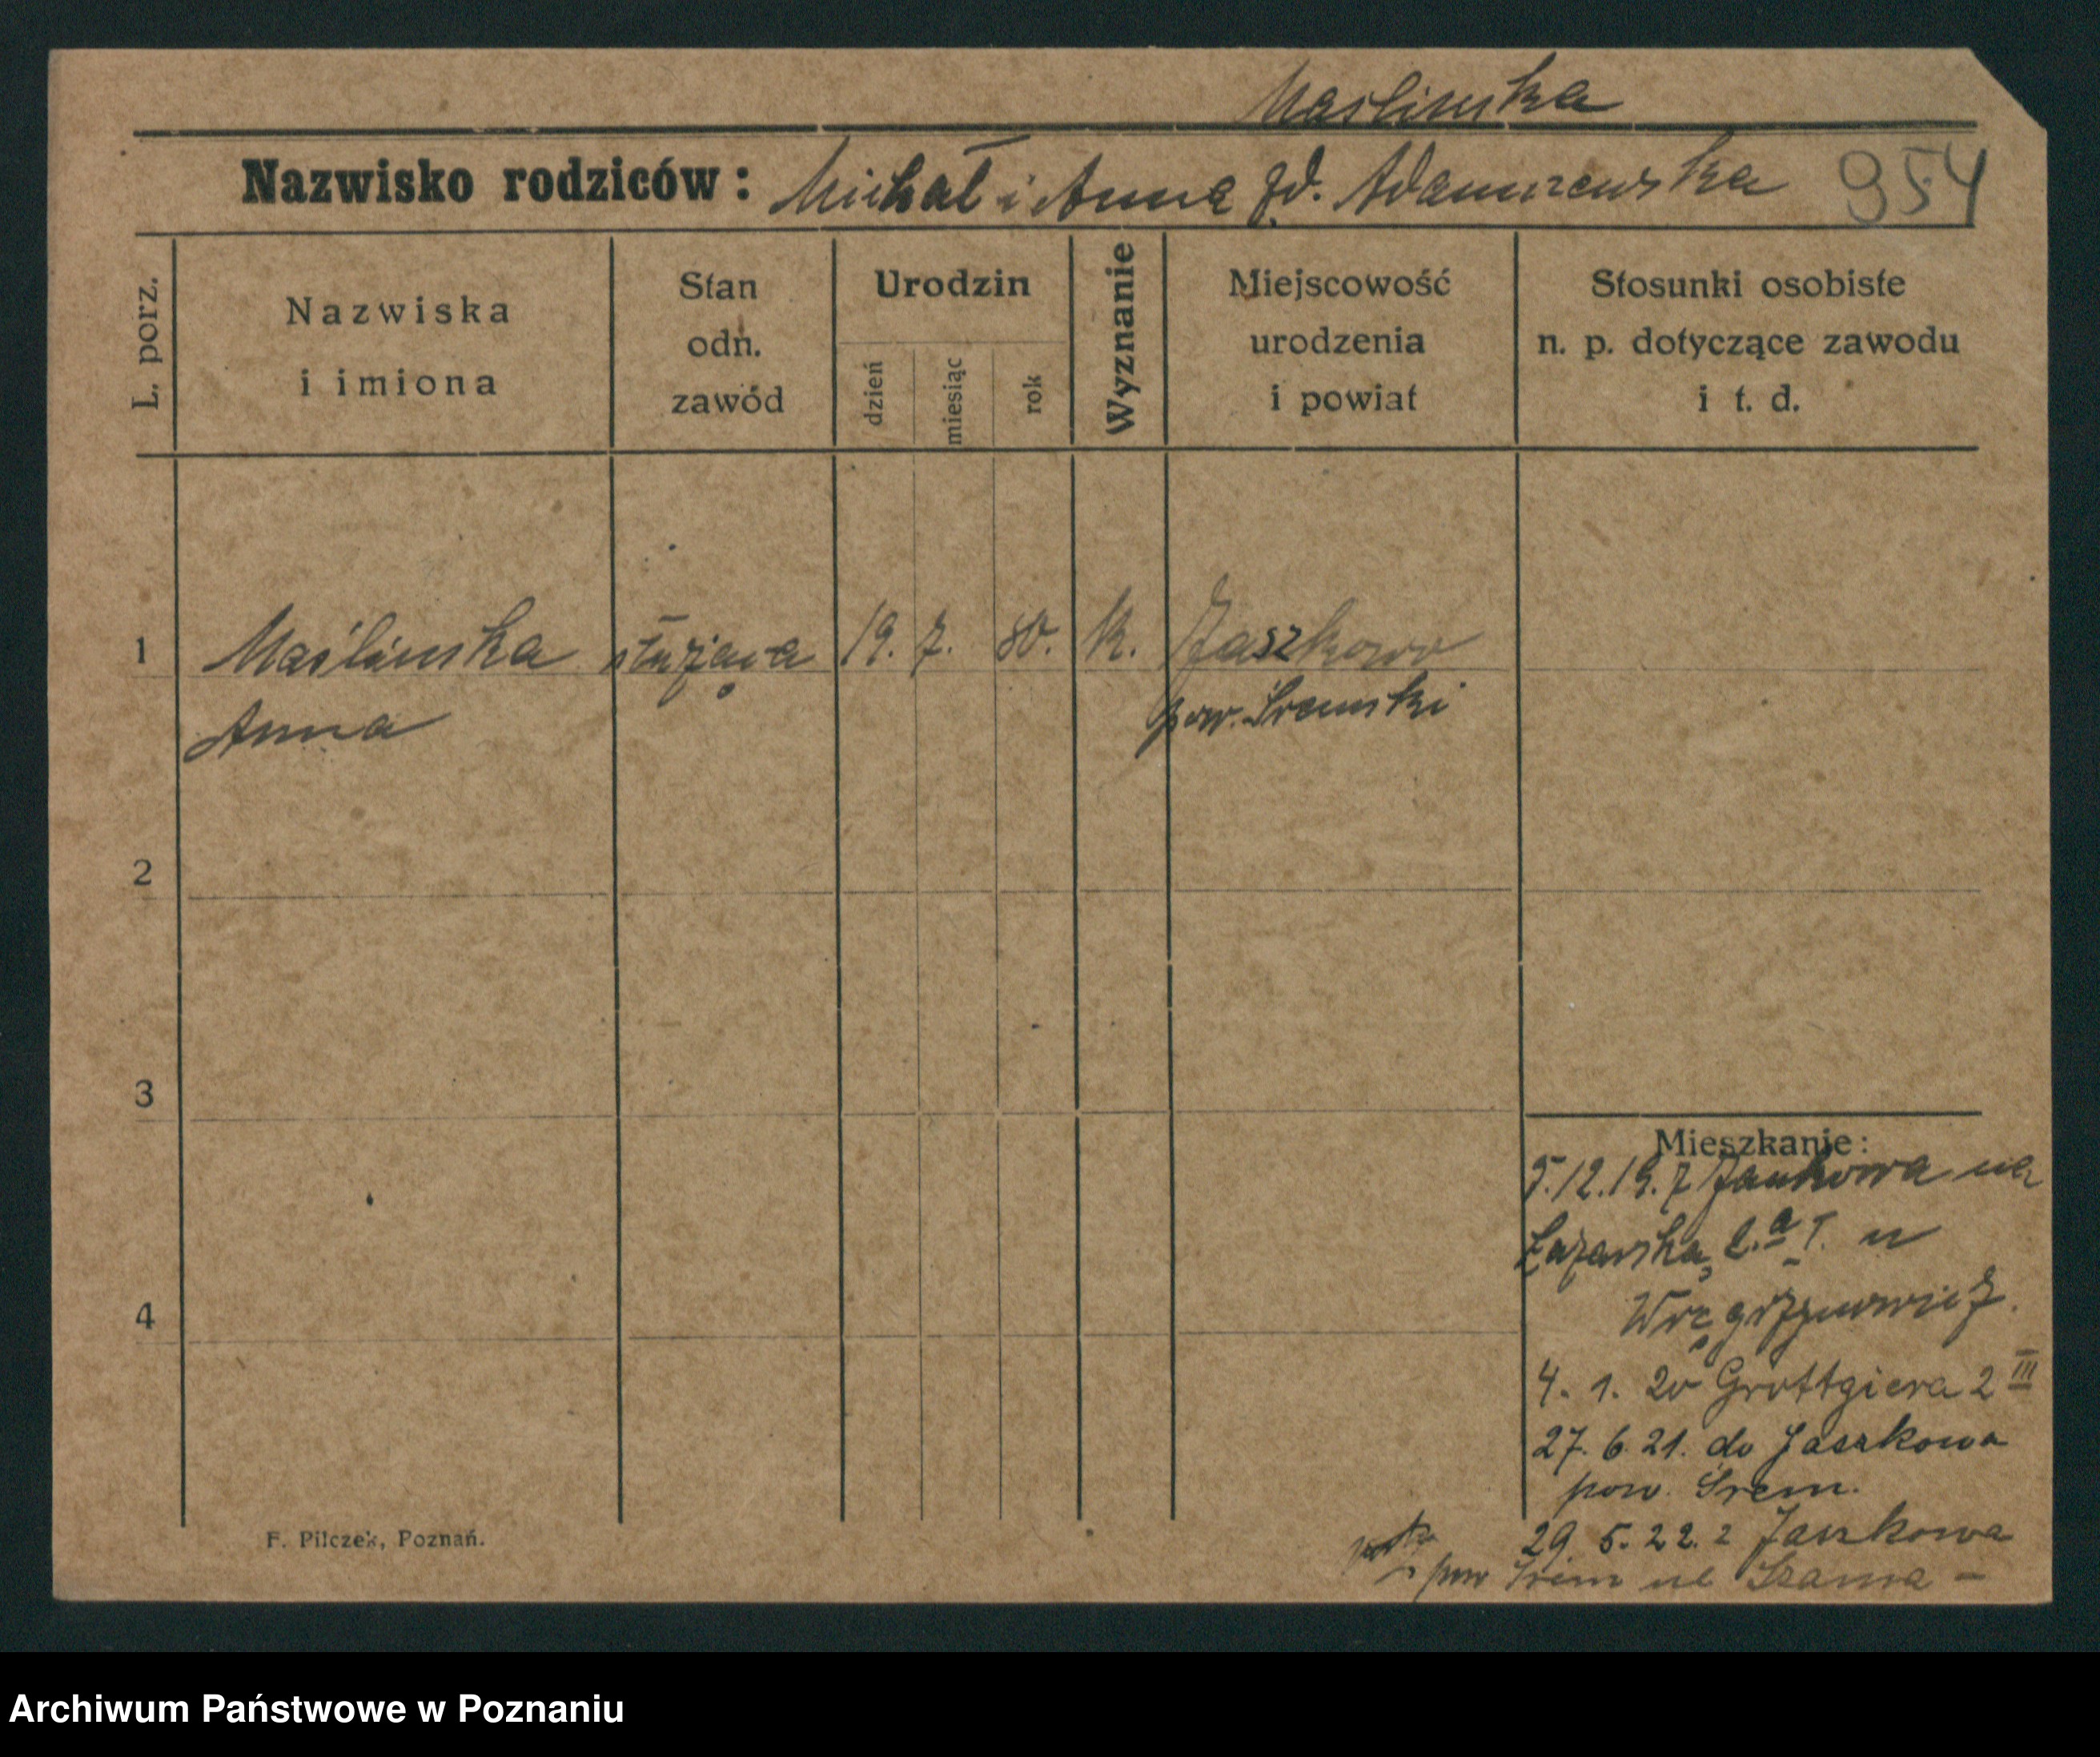 Maślińska
Nazwisko rodziców: Michał i Anna zd. Adamczewska 954
L. porz.
Nazwiska
i imiona
Stan
odn.
zawód
Urodzin
dzień
miesiąc
rok
Wyznanie
Miejscowość
urodzenia
i powiat
Stosunki osobiste
n. p. dotyczące zawodu
i t. d.
1
Maślińska służąca 19. 7. 80. k. Jaszkowo
Anna pow. Śremski
2
3
4
Mieszkanie:
5.12.19. z Jaszkowa na
Łazarska 2.a I. u
4. 1. 20 Grottgiera 2 III
27. 6. 21. do Jaszkowa
pow. Śrem.
29. 5. 22. z Jaszkowa
pow Śrem ul
F. Pilczek, Poznań.
Archiwum Państwowe w Poznaniu